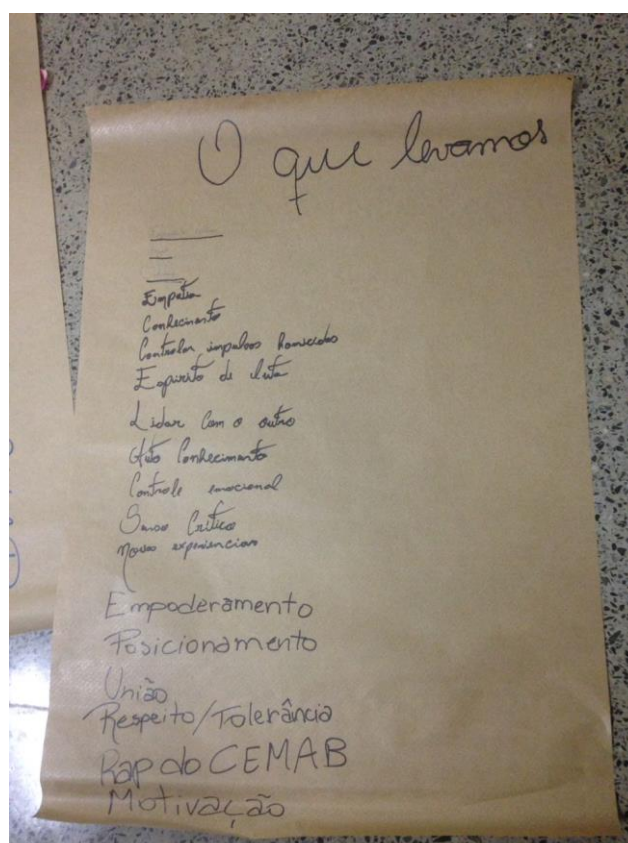 O que levamos
Empatia
Conhecimento
Controlar impulsos homicidas
Espirito de luta
Lidar Com o outro
Auto Conhecimento
Controle emocional
Senso Critico
Novas experiencias
Empoderamento
Posicionamento
União
Respeito/Tolerância
Rap do CEMAB
Motivação